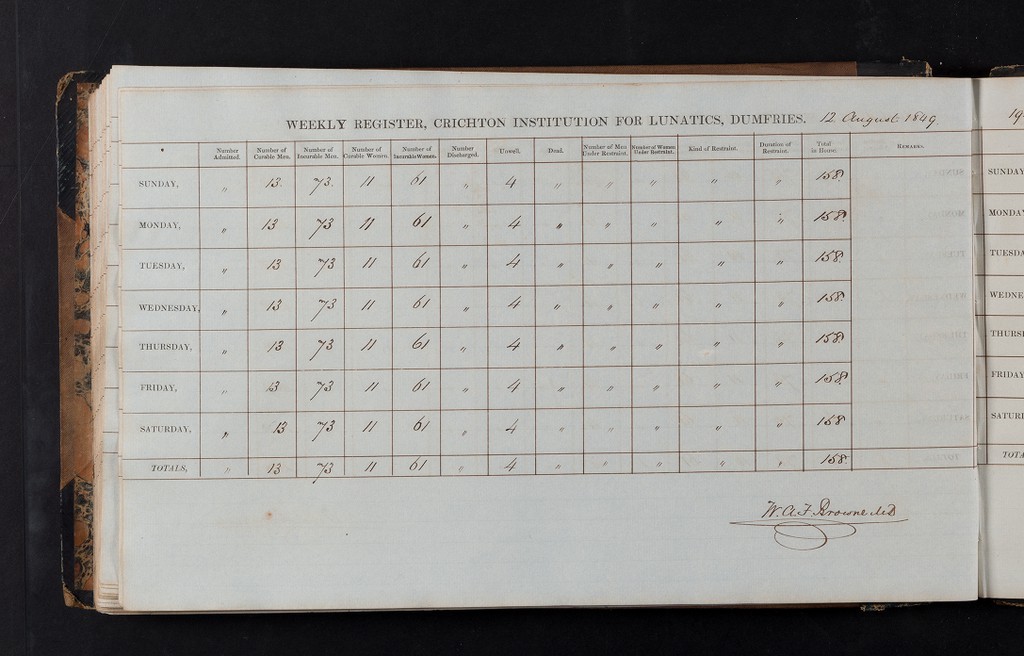 WEEKLY REGISTER, CRICHTON INSTITUTION FOR LUNATICS, DUMFRIES. 12 August 1849
Number Admitted. Number of Curable Men. Number of Incurable Men. Number of Curable Women. Number of Incurable Women. Number Discharged. Unwell. Dead. Number of Men Under Restraint. Number of Women Under Restraint. Kind of Restraint. Duration of Restraint. Total in House. REMARKS.
SUNDAY, " 13. 73. 11 61 " 4 " " " " " 158.
MONDAY, " 13 73 11 61 " 4 " " " " " 158.
TUESDAY, " 13 73 11 61 " 4 " " " " " 158.
WEDNESDAY, " 13 73 11 61 " 4 " " " " " 158
THURSDAY, " 13 73 11 61 " 4 " " " " " 158
FRIDAY, " 13 73 11 61 " 4 " " " " " 158.
SATURDAY, " 13 73 11 61 " 4 " " " " " 158
TOTALS, " 13 73 11 61 " 4 " " " " " 158.
W. A. F. Browne M D
19
SUNDAY
MONDAY
TUESDA
WEDNE
THURS
FRIDAY
SATUR
TOTA